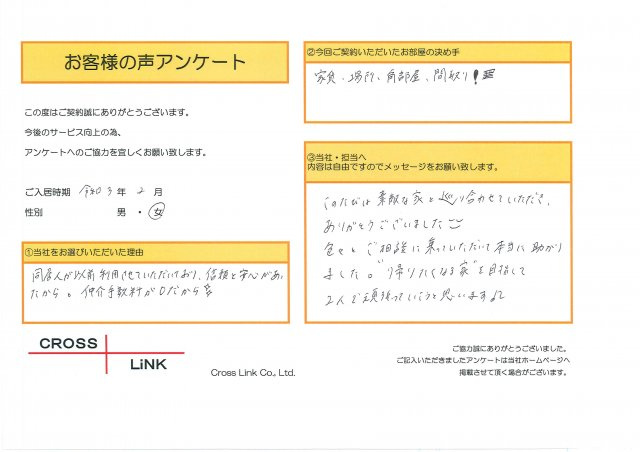 お客様の声アンケート
この度はご契約誠にありがとうございます。
今後のサービス向上の為、
アンケートへのご協力を宜しくお願い致します。
ご入居時期 令和3年2月
性別 男・女
①当社をお選びいただいた理由
同居人が以前利用させていただいており、信頼と安心があっ
たから。仲介手数料が0だから
CROSS
LiNK
Cross Link Co., Ltd.
②今回ご契約いただいたお部屋の決め手
家賃、場所、角部屋、間取り!
③当社・担当へ
内容は自由ですのでメッセージをお願い致します。
このたびは素敵な家と巡り合わせていただき、
ありがとうございました
色々とご相談に乗っていただいて本当に助かり
ました。"帰りたくなる家"を目指して
2人で頑張っていこうと思います
ご協力誠にありがとうございました。
ご記入いただきましたアンケートは当社ホームページへ
掲載させて頂く場合がございます。